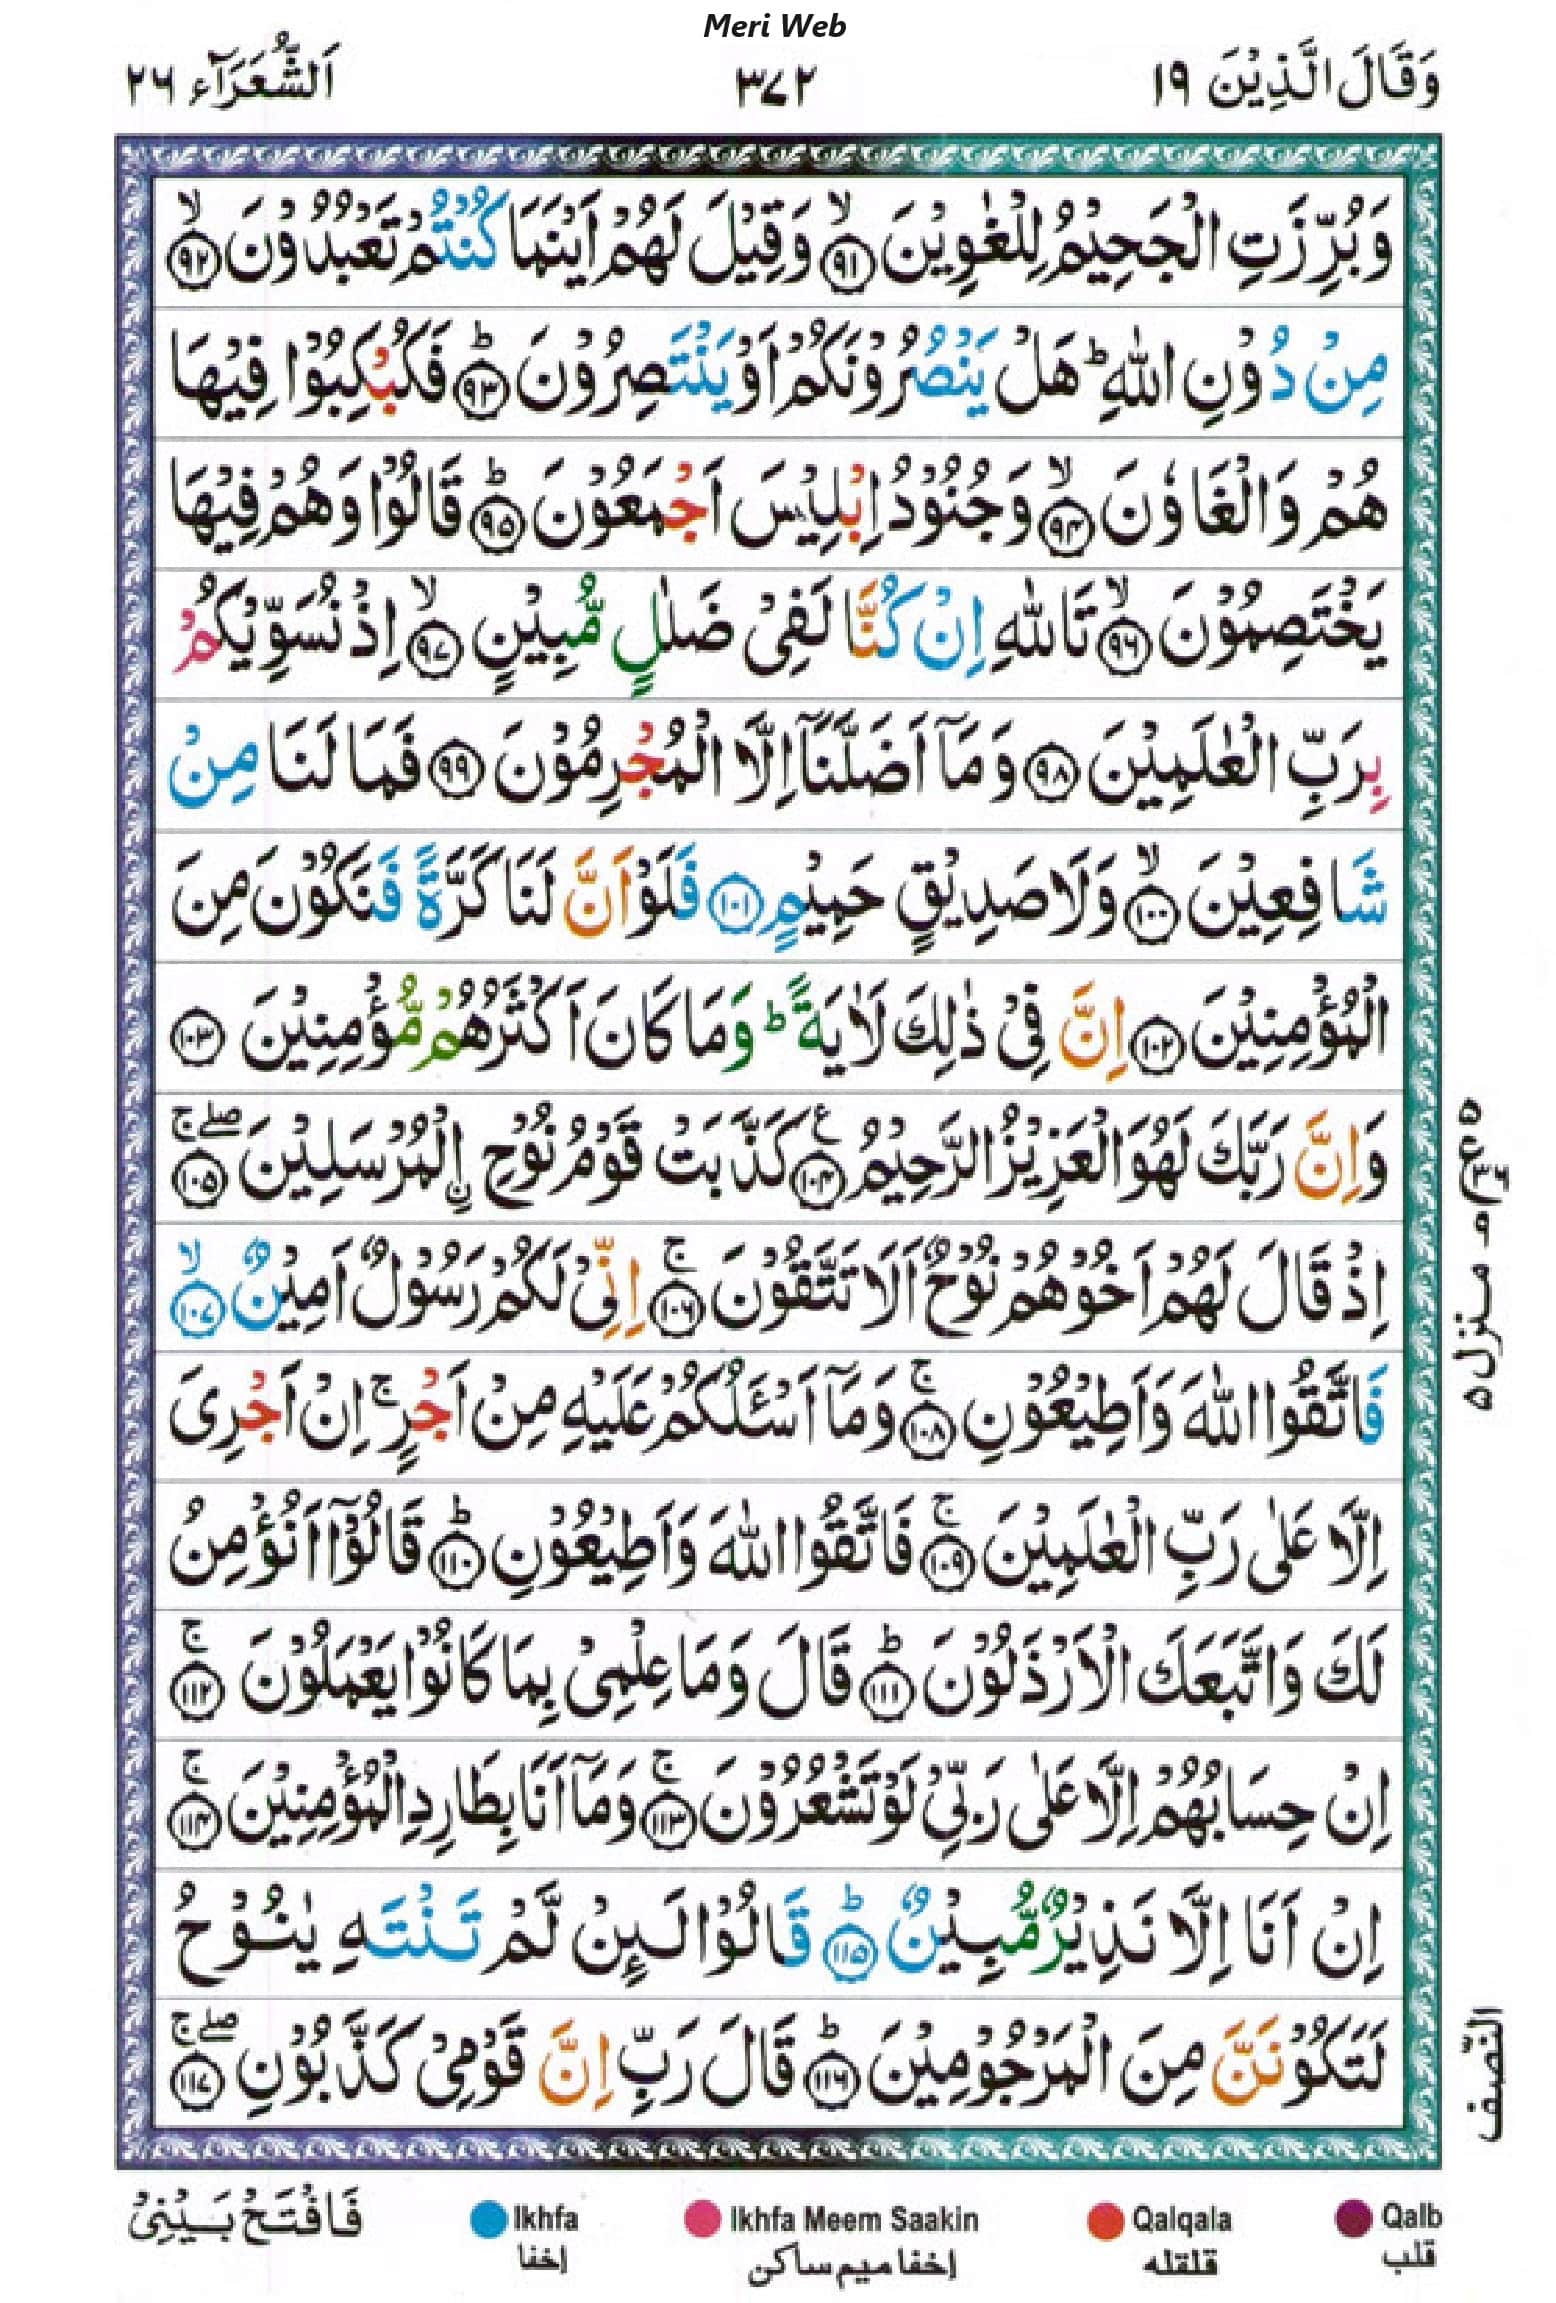 Meri Web
وَقَالَ الَّذِيْنَ ١٩
٣٧٢
اَلشُّعَرَآء ٢٦
وَبُرِّزَتِ الْجَحِيْمُ لِلْغٰوِيْنَ ۙ﴿٩١﴾ وَقِيْلَ لَهُمْ اَيْنَمَا كُنْتُمْ تَعْبُدُوْنَ ۙ﴿٩٢﴾
مِنْ دُوْنِ اللّٰهِ ؕ هَلْ يَنْصُرُوْنَكُمْ اَوْ يَنْتَصِرُوْنَ ؕ﴿٩٣﴾ فَكُبْكِبُوْا فِيْهَا
هُمْ وَالْغَاوٗنَ ۙ﴿٩٤﴾ وَجُنُوْدُ اِبْلِيْسَ اَجْمَعُوْنَ ؕ﴿٩٥﴾ قَالُوْا وَهُمْ فِيْهَا
يَخْتَصِمُوْنَ ۙ﴿٩٦﴾ تَاللّٰهِ اِنْ كُنَّا لَفِيْ ضَلٰلٍ مُّبِيْنٍ ۙ﴿٩٧﴾ اِذْ نُسَوِّيْكُمْ
بِرَبِّ الْعٰلَمِيْنَ ﴿٩٨﴾ وَمَآ اَضَلَّنَآ اِلَّا الْمُجْرِمُوْنَ ﴿٩٩﴾ فَمَا لَنَا مِنْ
شَافِعِيْنَ ۙ﴿١٠٠﴾ وَلَا صَدِيْقٍ حَمِيْمٍ ﴿١٠١﴾ فَلَوْ اَنَّ لَنَا كَرَّةً فَنَكُوْنَ مِنَ
الْمُؤْمِنِيْنَ ﴿١٠٢﴾ اِنَّ فِيْ ذٰلِكَ لَاٰيَةً ؕ وَمَا كَانَ اَكْثَرُهُمْ مُّؤْمِنِيْنَ ﴿١٠٣﴾
وَاِنَّ رَبَّكَ لَهُوَ الْعَزِيْزُ الرَّحِيْمُ ع﴿١٠٤﴾ كَذَّبَتْ قَوْمُ نُوْحِ ۨالْمُرْسَلِيْنَ ۖۚ﴿١٠٥﴾
اِذْ قَالَ لَهُمْ اَخُوْهُمْ نُوْحٌ اَلَا تَتَّقُوْنَ ۚ﴿١٠٦﴾ اِنِّيْ لَكُمْ رَسُوْلٌ اَمِيْنٌ ۙ﴿١٠٧﴾
فَاتَّقُوا اللّٰهَ وَاَطِيْعُوْنِ ۚ﴿١٠٨﴾ وَمَآ اَسْـَٔلُكُمْ عَلَيْهِ مِنْ اَجْرٍ ۚ اِنْ اَجْرِيَ
اِلَّا عَلٰى رَبِّ الْعٰلَمِيْنَ ۚ﴿١٠٩﴾ فَاتَّقُوا اللّٰهَ وَاَطِيْعُوْنِ ؕ﴿١١٠﴾ قَالُوْٓا اَنُؤْمِنُ
لَكَ وَاتَّبَعَكَ الْاَرْذَلُوْنَ ؕ﴿١١١﴾ قَالَ وَمَا عِلْمِيْ بِمَا كَانُوْا يَعْمَلُوْنَ ۚ﴿١١٢﴾
اِنْ حِسَابُهُمْ اِلَّا عَلٰى رَبِّيْ لَوْ تَشْعُرُوْنَ ۚ﴿١١٣﴾ وَمَآ اَنَا بِطَارِدِ الْمُؤْمِنِيْنَ ۚ﴿١١٤﴾
اِنْ اَنَا اِلَّا نَذِيْرٌ مُّبِيْنٌ ؕ﴿١١٥﴾ قَالُوْا لَىِٕنْ لَّمْ تَنْتَهِ يٰنُوْحُ
لَتَكُوْنَنَّ مِنَ الْمَرْجُوْمِيْنَ ؕ﴿١١٦﴾ قَالَ رَبِّ اِنَّ قَوْمِيْ كَذَّبُوْنِ ۖۚ﴿١١٧﴾
منزل ٥
النّصف
فَافْتَحْ بَيْنِيْ
Ikhfa
إخفا
Ikhfa Meem Saakin
إخفا ميم ساكن
Qalqala
قلقله
Qalb
قلب